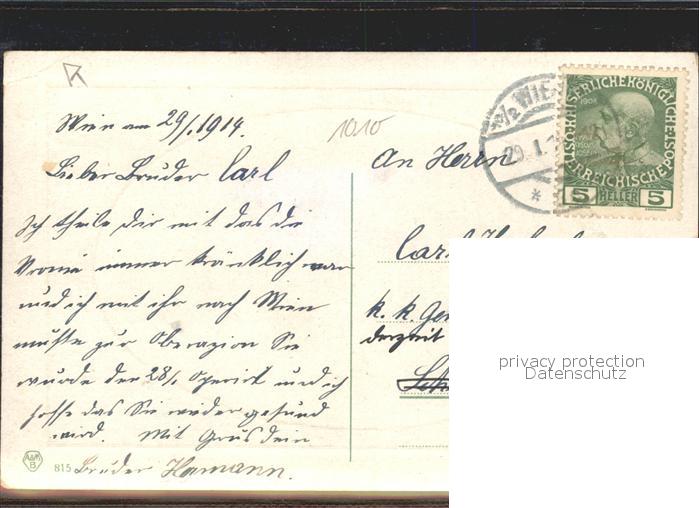 Wien am 29/1.1914.
1010
Lieber Bruder Carl
Ich theile Dir mit das die
immer kränklich war
und ich mit ihr nach Wien
mußte zur Oberazion Sie
wurde den 28/1 Operirt und ich
hoffe das Sie wieder gesund
wird. Mit Grus dein
Bruder Hamann.
815
A&M
B
WIE
29.I.1
1908
KAISERLICHE KÖNIGLICHE
ÖSTERREICHISCHE POST
5 HELLER 5
An Herrn
Carl
k. k. Ge
derzeit
privacy protection
Datenschutz